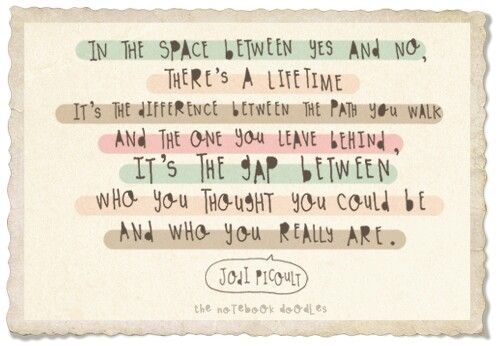 IN THE SPACE bETWEEN YES ANd NO,
THERE'S A LIFETIME
IT'S THE dIFFERENCE bETWEEN THE PATH YOU WALK
ANd THE ONE YOU LEAVE bEHINd,
IT'S THE GAP bETWEEN
WHO YOU THOUGHT YOU COULd bE
ANd WHO YOU REALLY ARE.
JOdI PICOULT
the NOTEbOOK dOOdLES